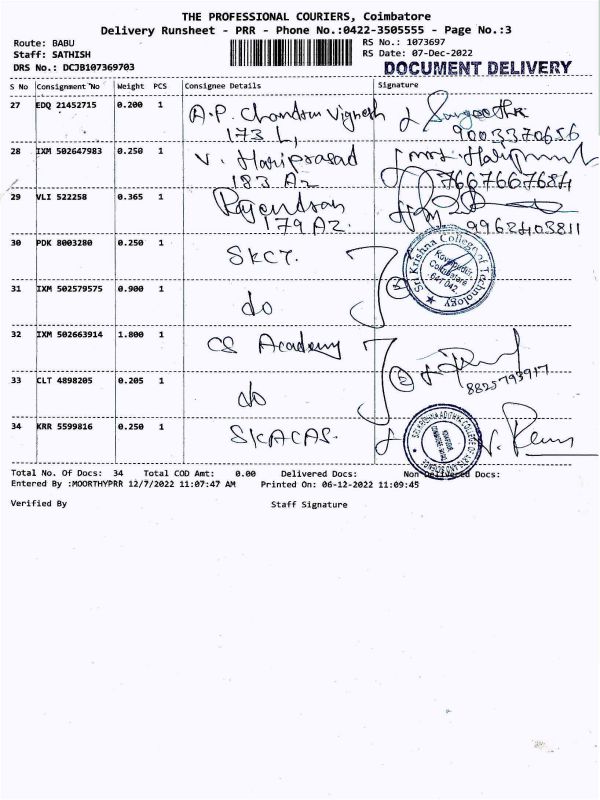 THE PROFESSIONAL COURIERS, Coimbatore
Delivery Runsheet - PRR - Phone No.:0422-3505555 - Page No.:3
Route: BABU
Staff: SATHISH
DRS No.: DCJB107369703
RS No.: 1073697
RS Date: 07-Dec-2022
DOCUMENT DELIVERY
S No Consignment No Weight PCS Consignee Details Signature
27 EDQ 21452715 0.200 1 A.P. Chandru Vignesh
173 L,
9003370656
28 IXM 502647983 0.250 1 V. Hariprasad
183 A2
7667667684
29 VLI 522258 0.365 1 Rajendran
179 A2.
9962408811
30 PDK 8003280 0.250 1 SKCT.
Sri Krishna College of Technology
Kovaipudur,
Coimbatore
641 042
31 IXM 502579575 0.900 1 do
2
32 IXM 502663914 1.800 1 CS Academy
2
8825793917
33 CLT 4898205 0.205 1 do
34 KRR 5599816 0.250 1 SKACAS.
Total No. Of Docs: 34 Total COD Amt: 0.00 Delivered Docs: Non Delivered Docs:
Entered By :MOORTHYPRR 12/7/2022 11:07:47 AM Printed On: 06-12-2022 11:09:45
Verified By Staff Signature